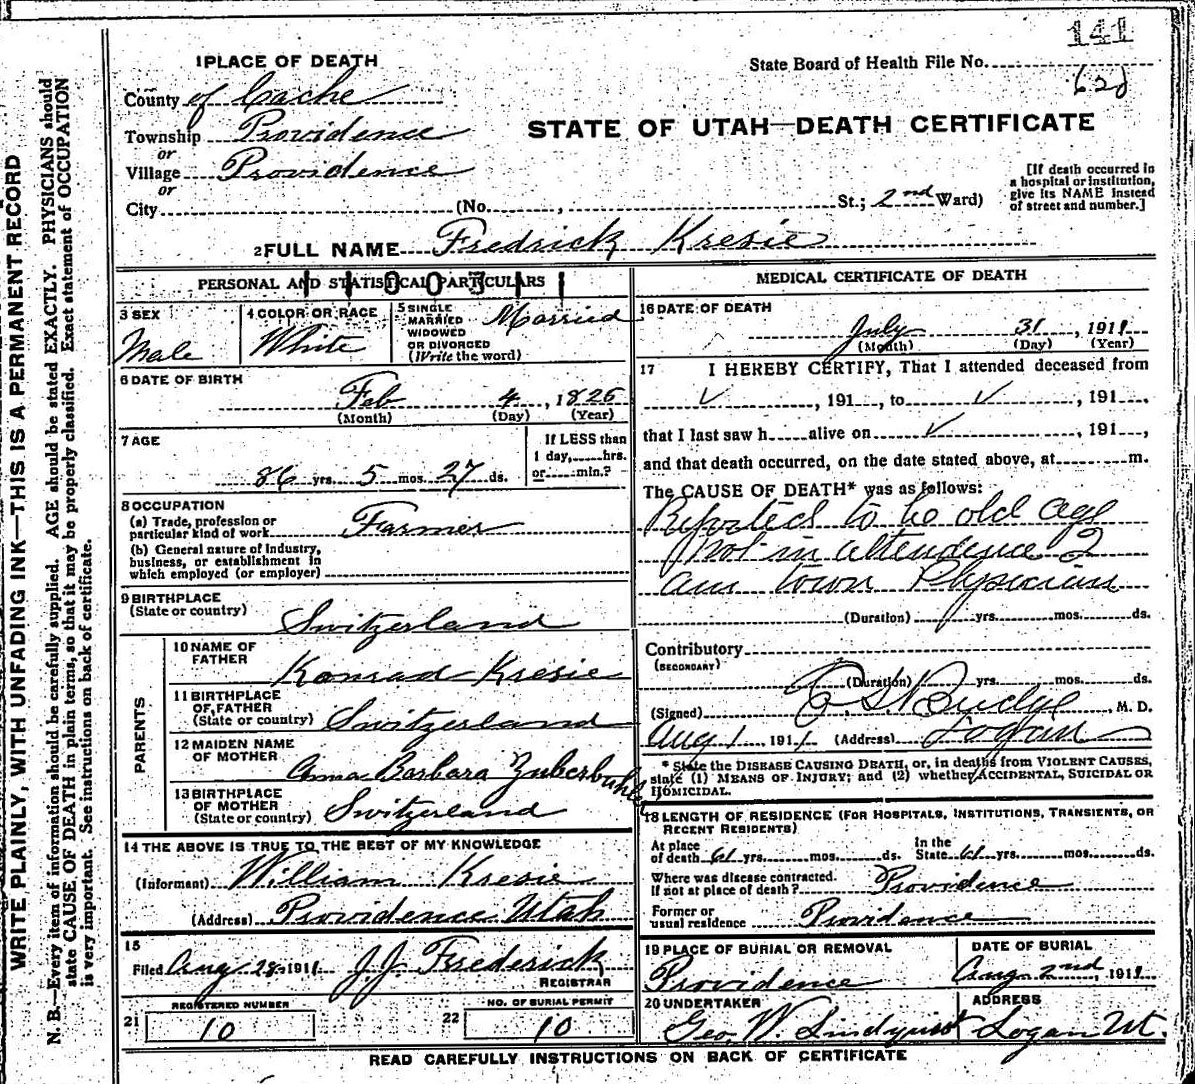 141
1 PLACE OF DEATH
State Board of Health File No.
62
County of Cache
Township Providence
or
Village Providence
or
City (No. , St.; 2nd Ward)
STATE OF UTAH—DEATH CERTIFICATE
[If death occurred in
a hospital or institution,
give its NAME instead
of street and number.]
2 FULL NAME Fredrick Kresie
PERSONAL AND STATISTICAL PARTICULARS
3 SEX
Male
4 COLOR OR RACE
White
5 SINGLE
MARRIED
WIDOWED
OR DIVORCED
(Write the word)
Married
6 DATE OF BIRTH
Feb 4, 1825
(Month) (Day) (Year)
7 AGE
86 yrs. 5 mos. 27 ds.
If LESS than
1 day, hrs.
or min.?
8 OCCUPATION
(a) Trade, profession or
particular kind of work Farmer
(b) General nature of industry,
business, or establishment in
which employed (or employer)
9 BIRTHPLACE
(State or country)
Switzerland
PARENTS
10 NAME OF
FATHER
Konrad Kresie
11 BIRTHPLACE
OF FATHER
(State or country) Switzerland
12 MAIDEN NAME
OF MOTHER
Anna Barbara Zuberbuhler
13 BIRTHPLACE
OF MOTHER
(State or country) Switzerland
14 THE ABOVE IS TRUE TO THE BEST OF MY KNOWLEDGE
(Informant) William Kresie
(Address) Providence Utah
15
Filed Aug 28 1911 J.J. Frederick
REGISTRAR
REGISTERED NUMBER
21 10
NO. OF BURIAL PERMIT
22 10
MEDICAL CERTIFICATE OF DEATH
16 DATE OF DEATH
July 31, 1911
(Month) (Day) (Year)
17 I HEREBY CERTIFY, That I attended deceased from
✓, 191 , to ✓, 191 ,
that I last saw h alive on ✓, 191 ,
and that death occurred, on the date stated above, at m.
The CAUSE OF DEATH* was as follows:
Reported to be old age
Not in attendence I
am town Physician
(Duration) yrs. mos. ds.
Contributory
(SECONDARY)
(Duration) yrs. mos. ds.
(Signed) Budge, M. D.
Aug 1 1911 (Address) Logan
* State the DISEASE CAUSING DEATH, or, in deaths from VIOLENT CAUSES,
state (1) MEANS OF INJURY; and (2) whether ACCIDENTAL, SUICIDAL OR
HOMICIDAL.
18 LENGTH OF RESIDENCE (FOR HOSPITALS, INSTITUTIONS, TRANSIENTS, OR
RECENT RESIDENTS)
At place
of death 61 yrs. mos. ds.
In the
State 61 yrs. mos. ds.
Where was disease contracted.
If not at place of death? Providence
Former or
usual residence Providence
19 PLACE OF BURIAL OR REMOVAL
Providence
DATE OF BURIAL
Aug 2nd, 1911
20 UNDERTAKER
Geo. W. Lindquist
ADDRESS
Logan Ut.
READ CAREFULLY INSTRUCTIONS ON BACK OF CERTIFICATE
WRITE PLAINLY, WITH UNFADING INK—THIS IS A PERMANENT RECORD
N. B.—Every item of information should be carefully supplied. AGE should be stated EXACTLY. PHYSICIANS should
state CAUSE OF DEATH in plain terms, so that it may be properly classified. Exact statement of OCCUPATION
is very important. See instructions on back of certificate.